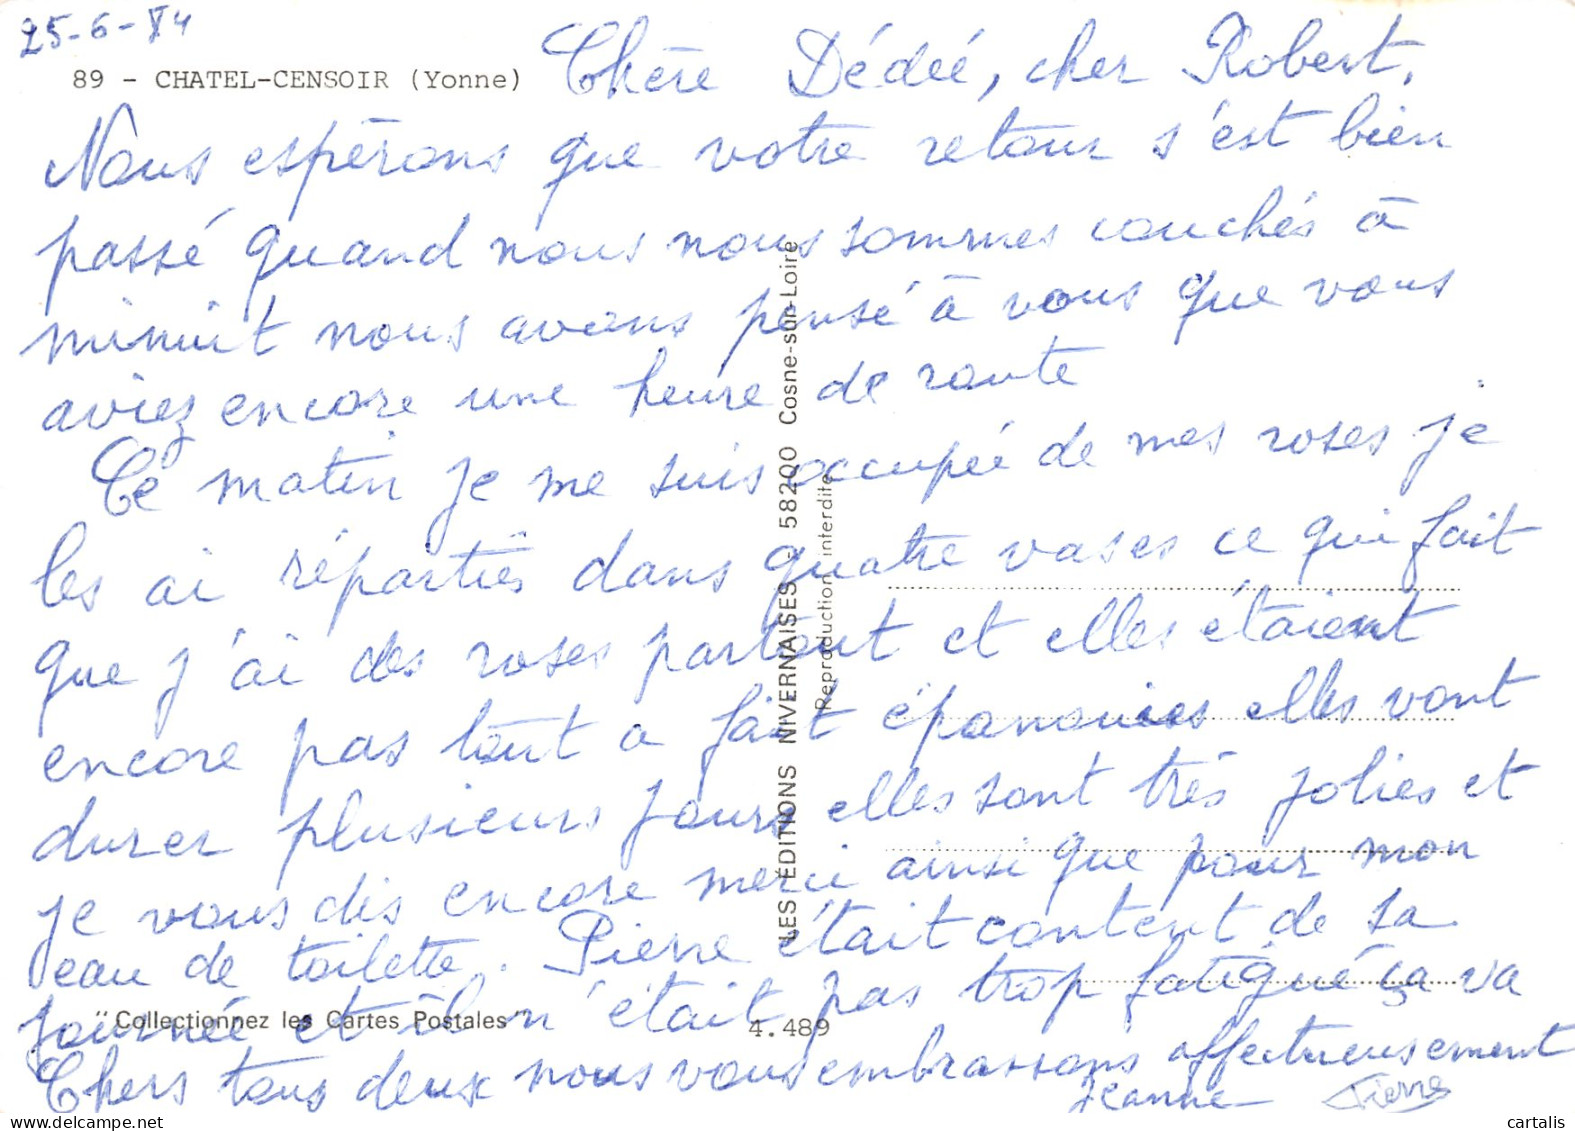 25-6-84
89 - CHATEL-CENSOIR (Yonne)
Chère Dédée, cher Robert,
Nous espérons que votre retour s'est bien
passé quand nous nous sommes couchés à
minuit nous avons pensé à vous que vous
aviez encore une heure de route
Ce matin je me suis occupée de mes roses je
les ai réparties dans quatre vases ce qui fait
que j'ai des roses partout et elles étaient
encore pas tout a fait épanouies elles vont
durer plusieurs jours elles sont très jolies et
je vous dis encore merci ainsi que pour mon
eau de toilette. Pierre était content de sa
journée et il n'était pas trop fatigué ça va
Chers tous deux nous vous embrassons affectueusement
Jeanne Pierre
LES ÉDITIONS NIVERNAISES - 58200 Cosne-sur-Loire
Reproduction interdite
"Collectionnez les Cartes Postales"
4.489
cartalis